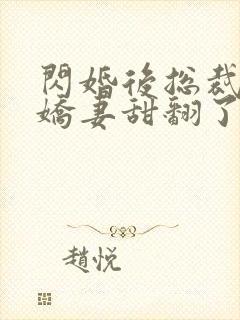 閃婚後總裁
嬌妻甜翻了
趙悅